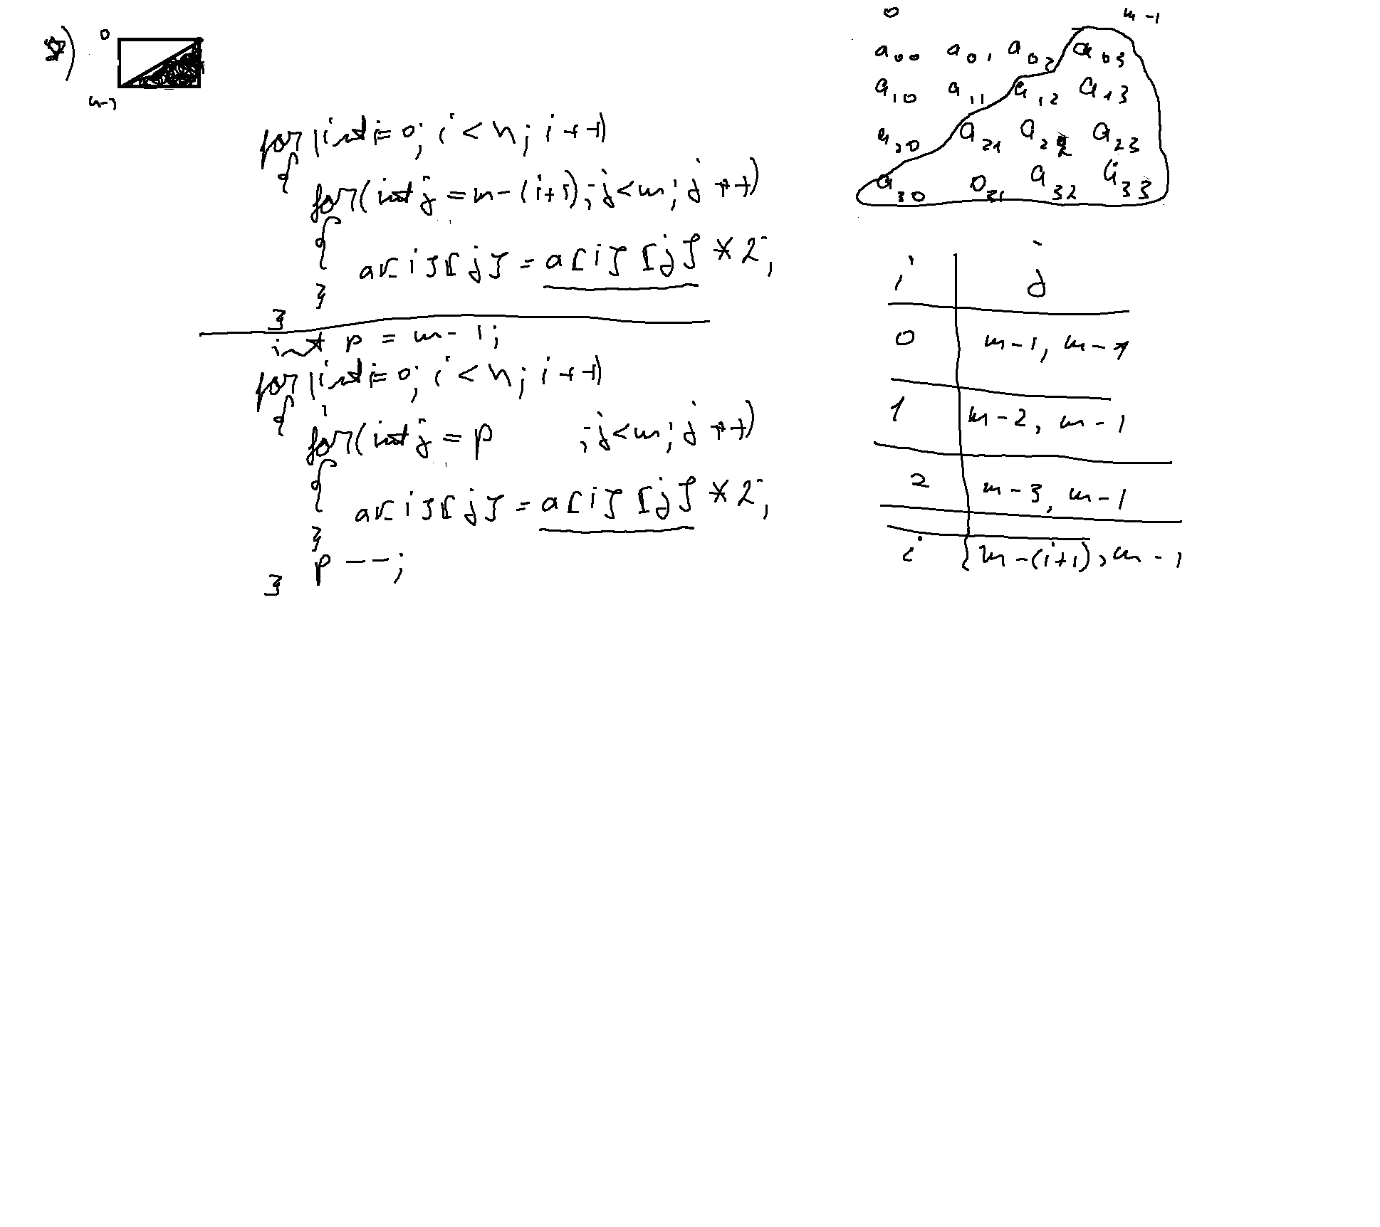 0
n-1
for(int i=0; i<n; i++)
{
for(int j=m-(i+1); j<m; j++)
{
a[i][j] = a[i][j] * 2;
}
}
int p = m-1;
for(int i=0; i<n; i++)
{
for(int j=p ; j<m; j++)
{
a[i][j] = a[i][j] * 2;
}
p--;
}
0 m-1
a00 a01 a02 a03
a10 a11 a12 a13
a20 a21 a22 a23
a30 a31 a32 a33
i j
0 m-1, m-1
1 m-2, m-1
2 m-3, m-1
i m-(i+1), m-1